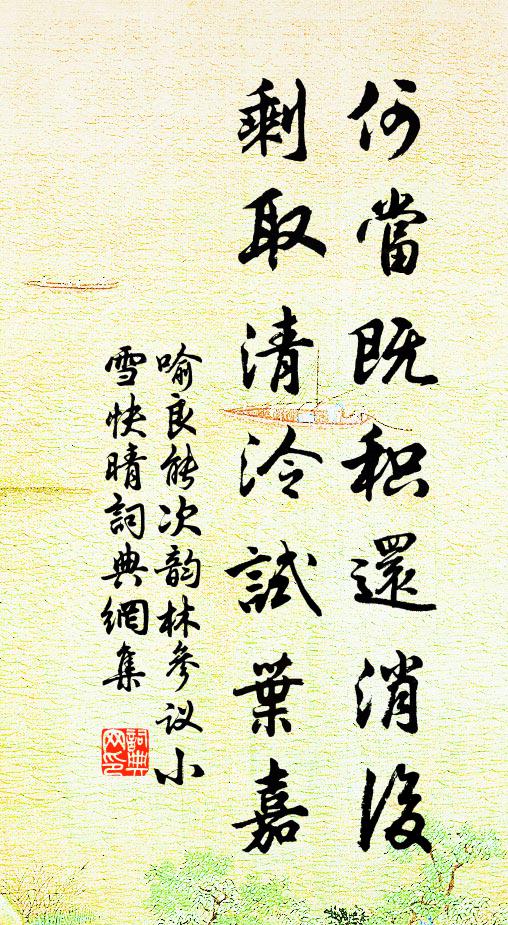 何當既积還消後
剩取清泠試葉嘉
喻良能次韵林參议小
雪快晴詞典網集
詞典网印